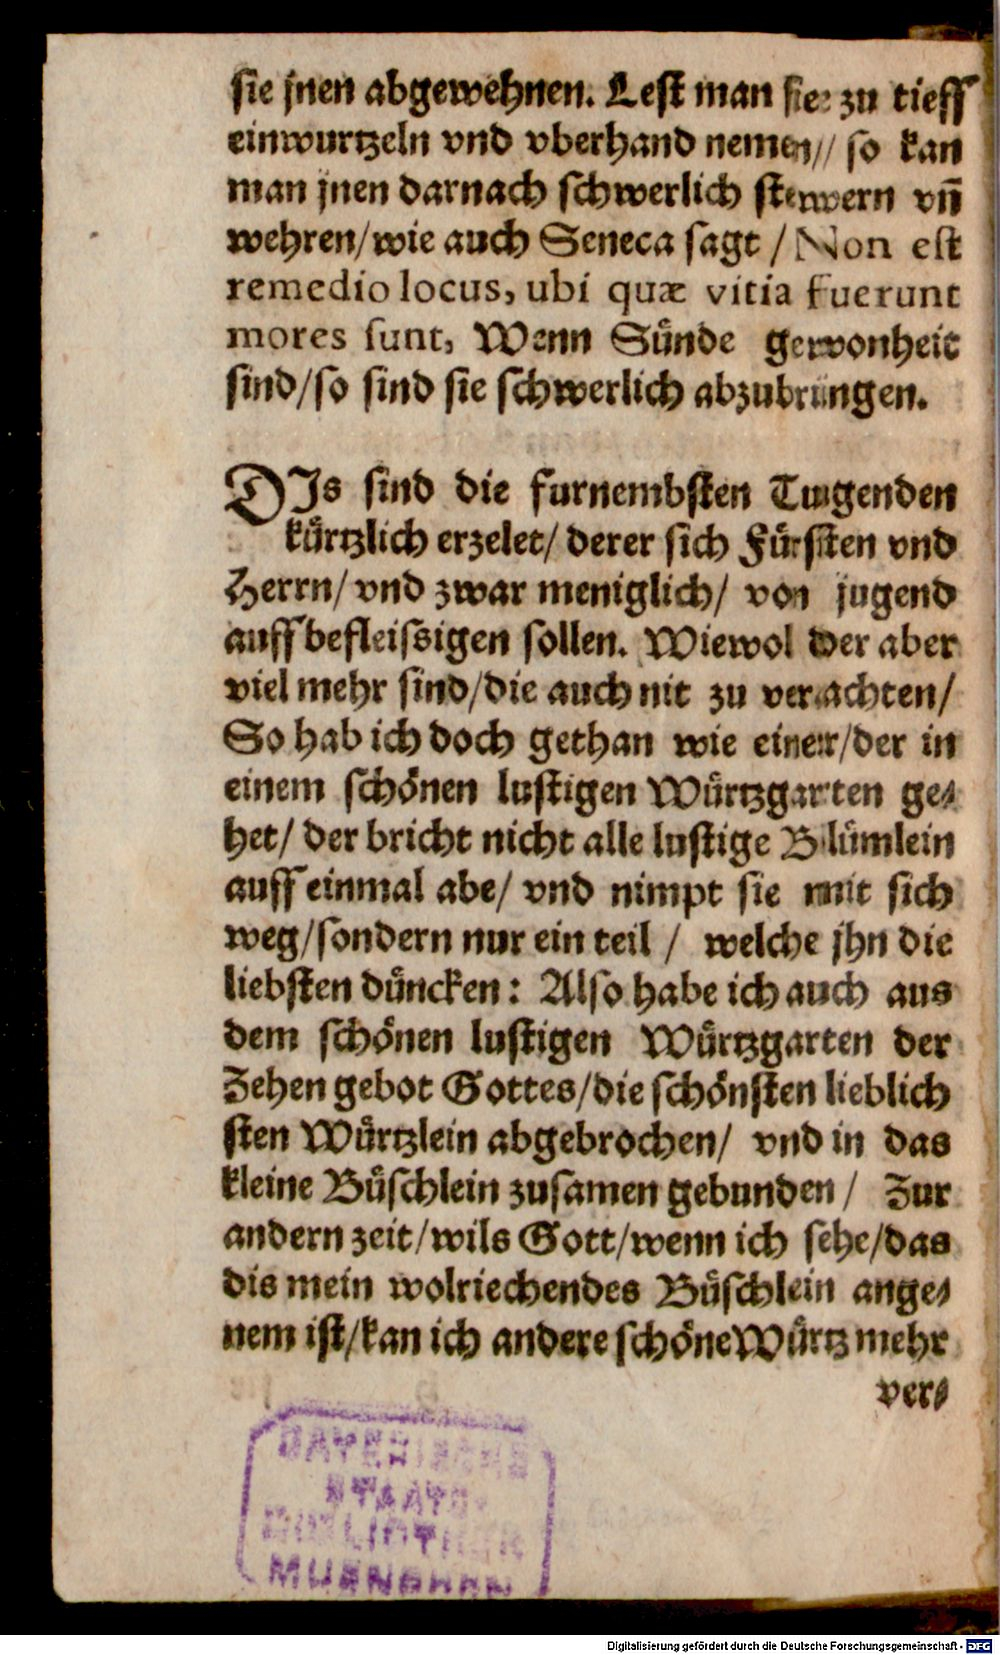 sie jnen abgewehnen. Lest man sie zu tieff
einwurtzeln vnd vberhand nemen// so kan
man jnen darnach schwerlich stewern vñ
wehren/wie auch Seneca sagt / Non est
remedio locus, ubi quæ vitia fuerunt
mores sunt, Wenn Sünde gewonheit
sind/so sind sie schwerlich abzubrüngen.
DIs sind die furnembsten Tugenden
kürtzlich erzelet/ derer sich Fürsten vnd
Herrn/ vnd zwar meniglich/ von jugend
auff befleissigen sollen. Wiewol der aber
viel mehr sind/die auch nit zu verachten/
So hab ich doch gethan wie einer/der in
einem schönen lustigen Würtzgarten ge⸗
het/ der bricht nicht alle lustige Blümlein
auff einmal abe/ vnd nimpt sie mit sich
weg/sondern nur ein teil / welche jhn die
liebsten düncken: Also habe ich auch aus
dem schönen lustigen Würtzgarten der
Zehen gebot Gottes/die schönsten lieblich
sten Würtzlein abgebrochen/ vnd in das
kleine Büschlein zusamen gebunden / Zur
andern zeit/wils Gott/wenn ich sehe/das
dis mein wolriechendes Büschlein ange⸗
nem ist/kan ich andere schöne Würtz mehr
ver⸗
BAYERISCHE
STAATS-
BIBLIOTHEK
MUENCHEN
Digitalisierung gefördert durch die Deutsche Forschungsgemeinschaft - DFG